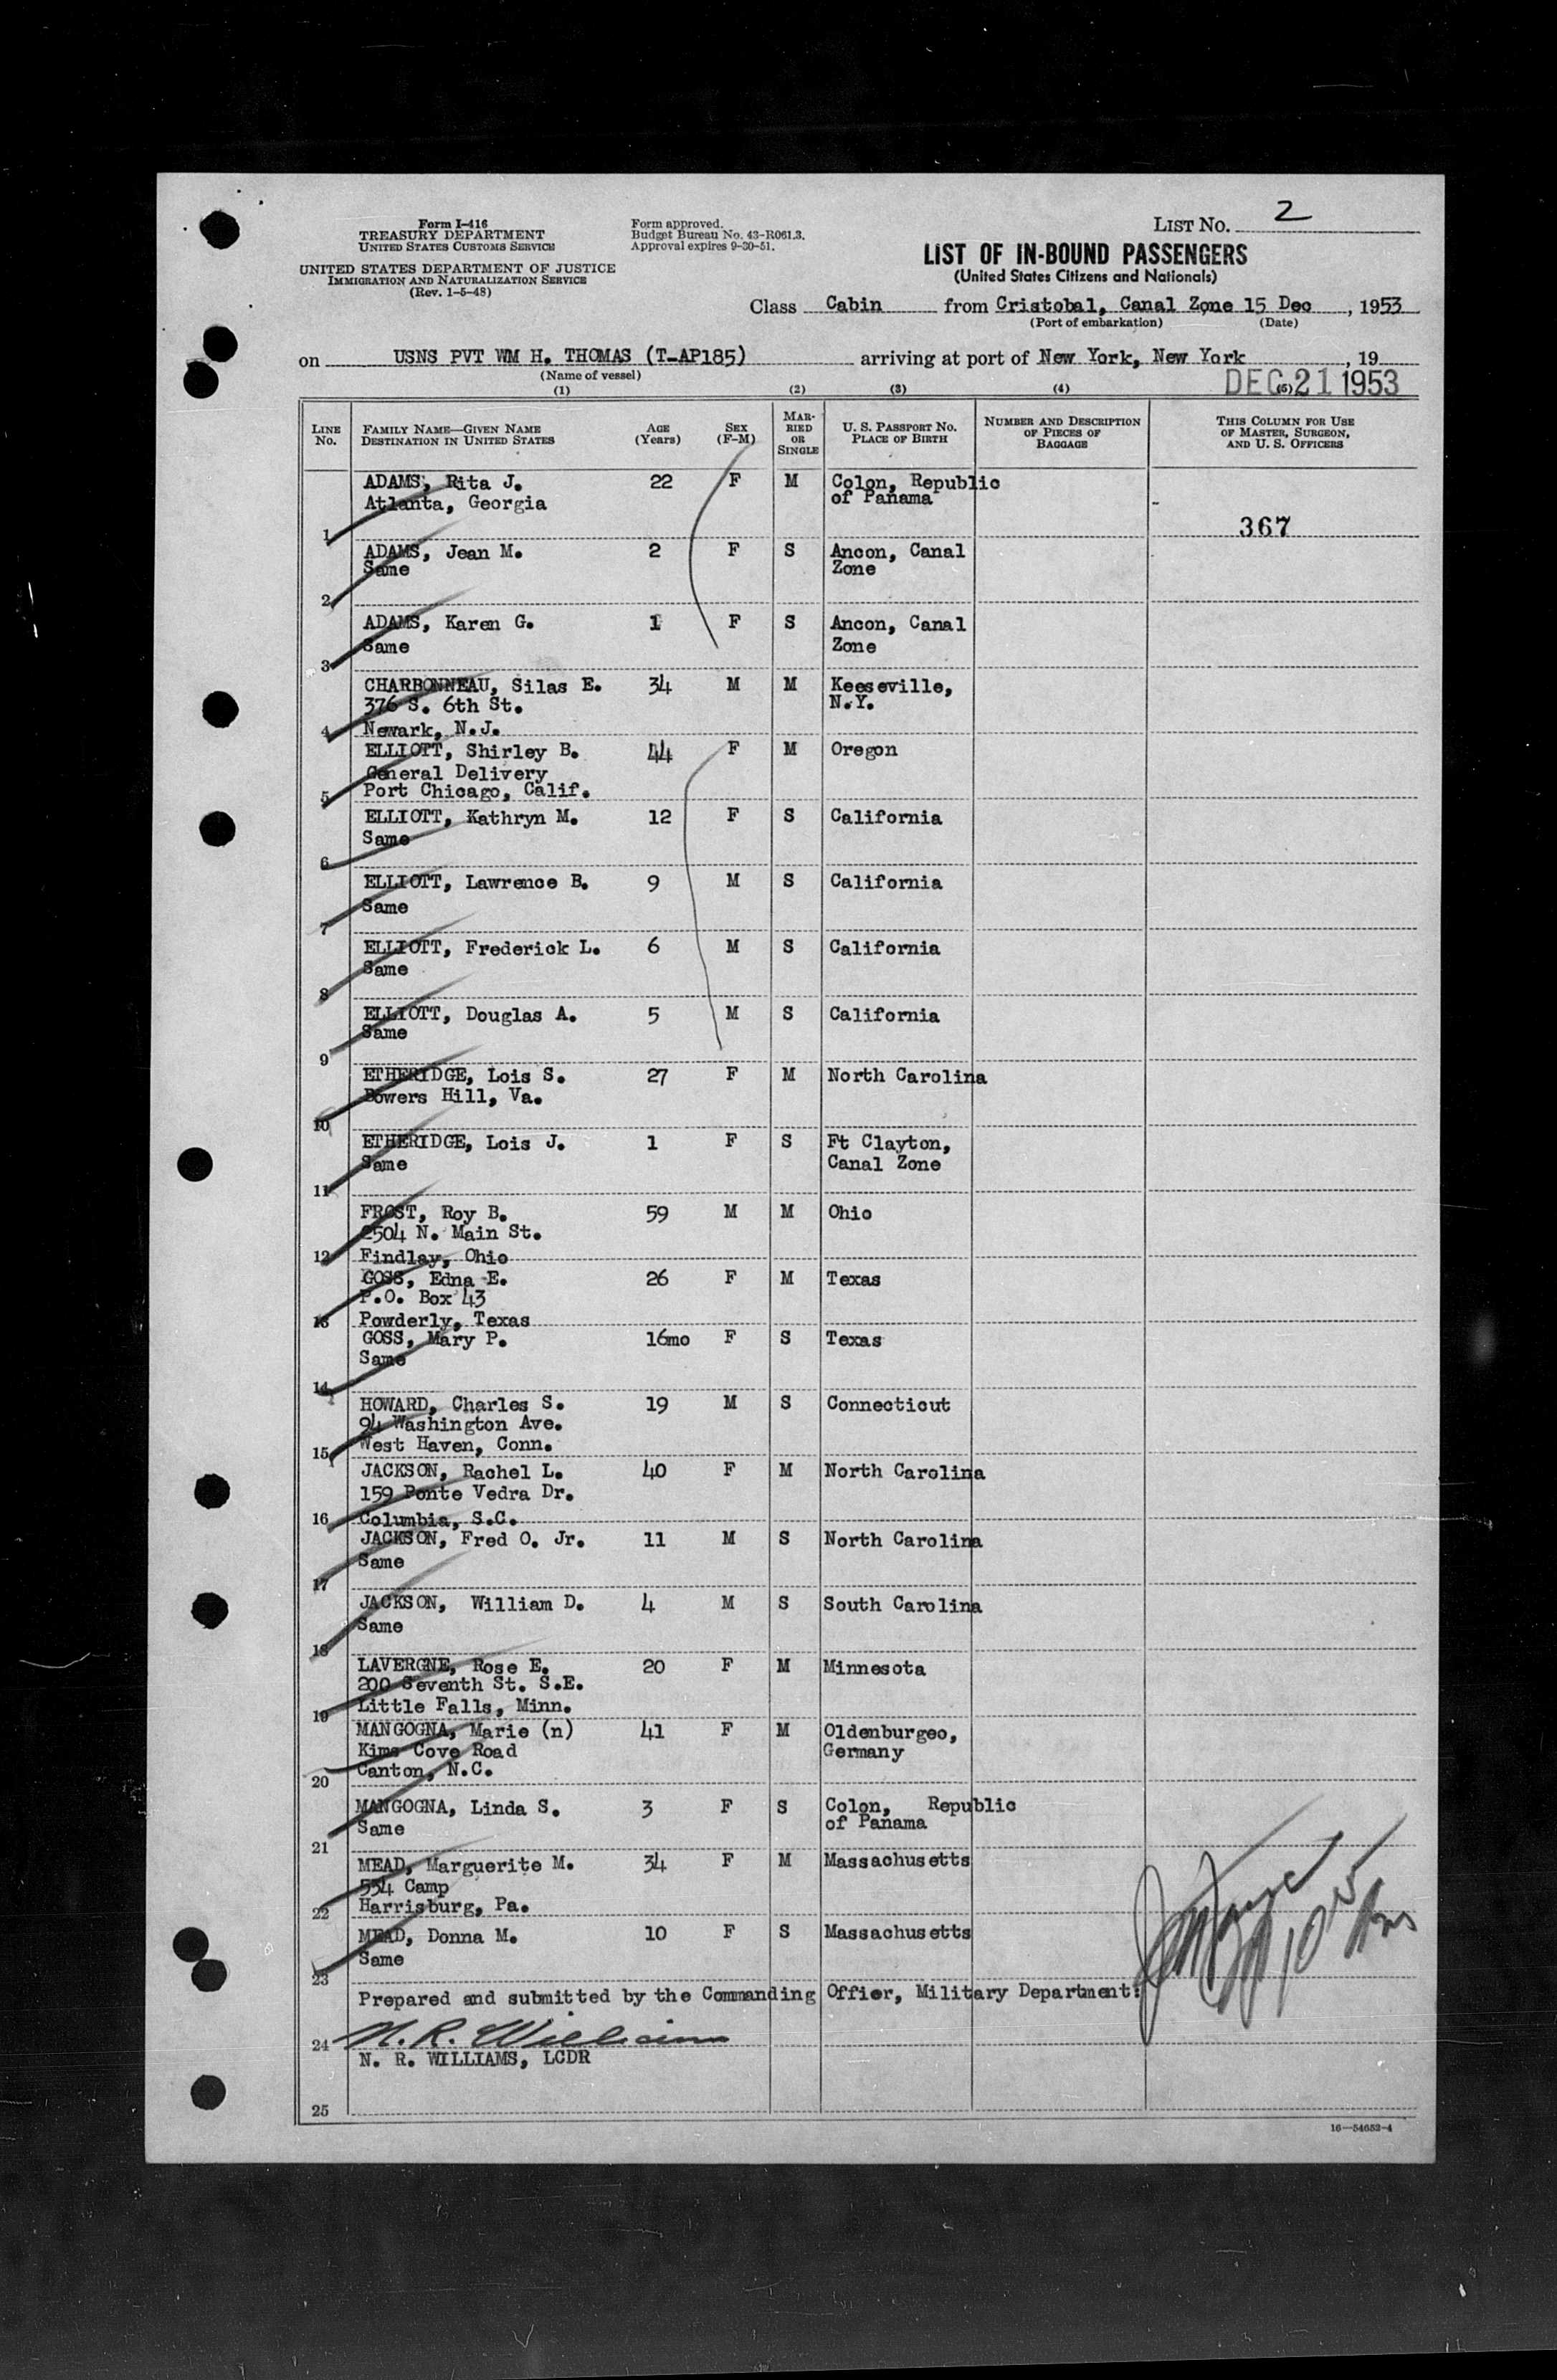 Form I-416
TREASURY DEPARTMENT
UNITED STATES CUSTOMS SERVICE
UNITED STATES DEPARTMENT OF JUSTICE
IMMIGRATION AND NATURALIZATION SERVICE
(Rev. 1-5-48)
Form approved.
Budget Bureau No. 43-R061.3.
Approval expires 9-30-51.
LIST NO. 2
LIST OF IN-BOUND PASSENGERS
(United States Citizens and Nationals)
Class Cabin from Cristobal, Canal Zone 15 Dec, 1953
(Port of embarkation) (Date)
on USNS PVT WM H. THOMAS (T-AP185) arriving at port of New York, New York, 19
(Name of vessel)
DEC 21 1953
(1) (2) (3) (4) (5)
LINE No. FAMILY NAME—GIVEN NAME DESTINATION IN UNITED STATES AGE (Years) SEX (F-M) MARRIED OR SINGLE U. S. PASSPORT NO. PLACE OF BIRTH NUMBER AND DESCRIPTION OF PIECES OF BAGGAGE THIS COLUMN FOR USE OF MASTER, SURGEON, AND U. S. OFFICERS
ADAMS, Rita J. 22 F M Colon, Republic
Atlanta, Georgia of Panama
1 367
ADAMS, Jean M. 2 F S Ancon, Canal
Same Zone
2
ADAMS, Karen G. 1 F S Ancon, Canal
Same Zone
3
CHARBONNEAU, Silas E. 34 M M Keeseville,
376 S. 6th St. N.Y.
4 Newark, N.J.
ELLIOTT, Shirley B. 44 F M Oregon
General Delivery
5 Port Chicago, Calif.
ELLIOTT, Kathryn M. 12 F S California
Same
6
ELLIOTT, Lawrence B. 9 M S California
Same
7
ELLIOTT, Frederick L. 6 M S California
Same
8
ELLIOTT, Douglas A. 5 M S California
Same
9
ETHERIDGE, Lois S. 27 F M North Carolina
Bowers Hill, Va.
10
ETHERIDGE, Lois J. 1 F S Ft Clayton,
Same Canal Zone
11
FROST, Roy B. 59 M M Ohio
2504 N. Main St.
12 Findlay, Ohio
GOSS, Edna E. 26 F M Texas
P.O. Box 43
13 Powderly, Texas
GOSS, Mary P. 16mo F S Texas
Same
14
HOWARD, Charles S. 19 M S Connecticut
94 Washington Ave.
15 West Haven, Conn.
JACKSON, Rachel L. 40 F M North Carolina
159 Ponte Vedra Dr.
16 Columbia, S.C.
JACKSON, Fred O. Jr. 11 M S North Carolina
Same
17
JACKSON, William D. 4 M S South Carolina
Same
18
LAVERGNE, Rose E. 20 F M Minnesota
200 Seventh St. S.E.
19 Little Falls, Minn.
MANGOGNA, Marie (n) 41 F M Oldenburgeo,
Kims Cove Road Germany
20 Canton, N.C.
MANGOGNA, Linda S. 3 F S Colon, Republic
Same of Panama
21
MEAD, Marguerite M. 34 F M Massachusetts
534 Camp
22 Harrisburg, Pa.
MEAD, Donna M. 10 F S Massachusetts
Same
23
Prepared and submitted by the Commanding Offier, Military Department:
24 N. R. Williams
N. R. WILLIAMS, LCDR
25
16—54652-4